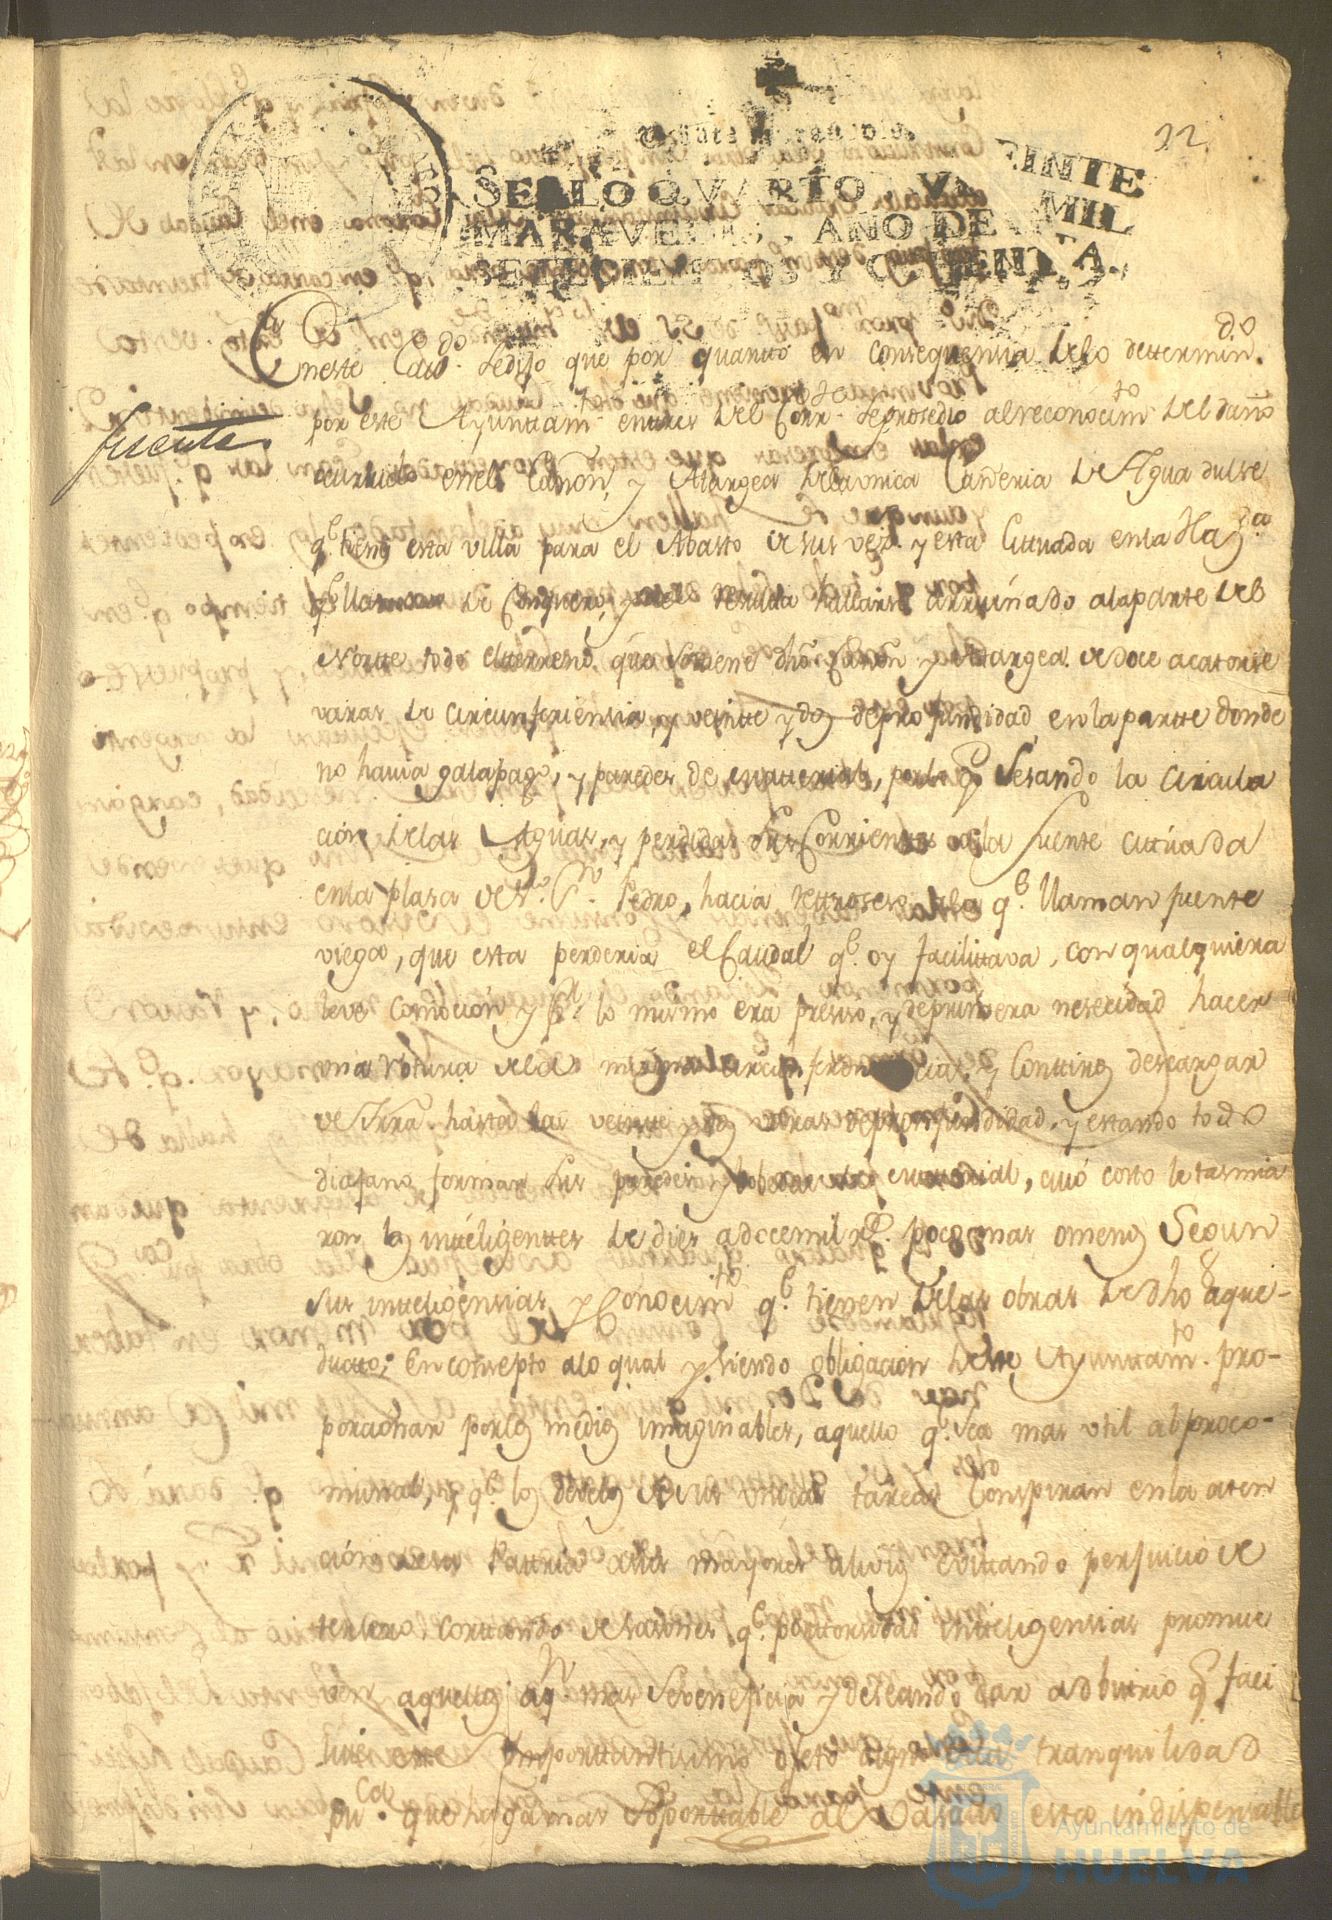 22
SELLO QVARTO, VEINTE
MARAVEDIS, AÑO DE MIL
SETECIENTOS Y OCHENTA.
fuente
En este Cavdo. se dijo que por quanto en consequensia de lo dettermindo.
por este Ayunttamto. en de el Corrte. se prosedio al reconocimto. del daño
ocurrido en el Cañon, y Atargea de la vnica Cañeria de Agua dulse
qe. tiene esta villa para el Abasto de sus vezs. y esta cittuada en la Hazda.
qe llaman de Conquero, y de resulta hallarse arruinado a la parte del
Nortte todo el tterreno que sostiene dho. Cañon y Atargea de doce a catorse
varas de circunferiensia, y veintte y dos de profundidad en la partte donde
no havia galapago, y paredes de matterial, por lo qe. sesando la circula
cion de las Aguas, y perdidas sus Corrientes a la fuente cittuada
en la plasa de Sor. Sn. Pedro, hacia rettroseso a la qe. llaman fuente
vieja, que esta perderia el Caudal qe. oy facilittava, con qualquiera
leve comocion y pr. lo mismo era presiso, y de primera nesecidad hacer
vna rotura de la misma circunferencia, y continuo descargar
de tierra hasta las veintte y dos varas de profundidad, y estando todo
diafano formar sus paredes y bobedas de matterial, cuio costo le tasaria
ron los intteligenttes de dies a doce mil rs. poco mas o menos segun
sus intteligensias y Conocimto. qe. tienen de las obras de dho aque-
ductto; En consepto a lo qual y siendo obligacion de este Ayunttamto. pro-
porcionar por los medios imaginables, aquello qe. sea mas vtil al proco-
munal, y qe. los desvelos de sus vnicas tareas Conspiran en la aten
cion de la Pattria a los mayores alivios evittando perjuicio de
tersero, corttando desasones qe. por ttorsidad intteligensias promue
aquellos a qn. mas se venefisia y deseando dar adbittrio qe. faci
litte Ymporttanttisimo ojeto digno de la tranquilidad
puca. que haga mas soporttable al Vasallo esta indispensable
Ayuntamiento de
HUELVA